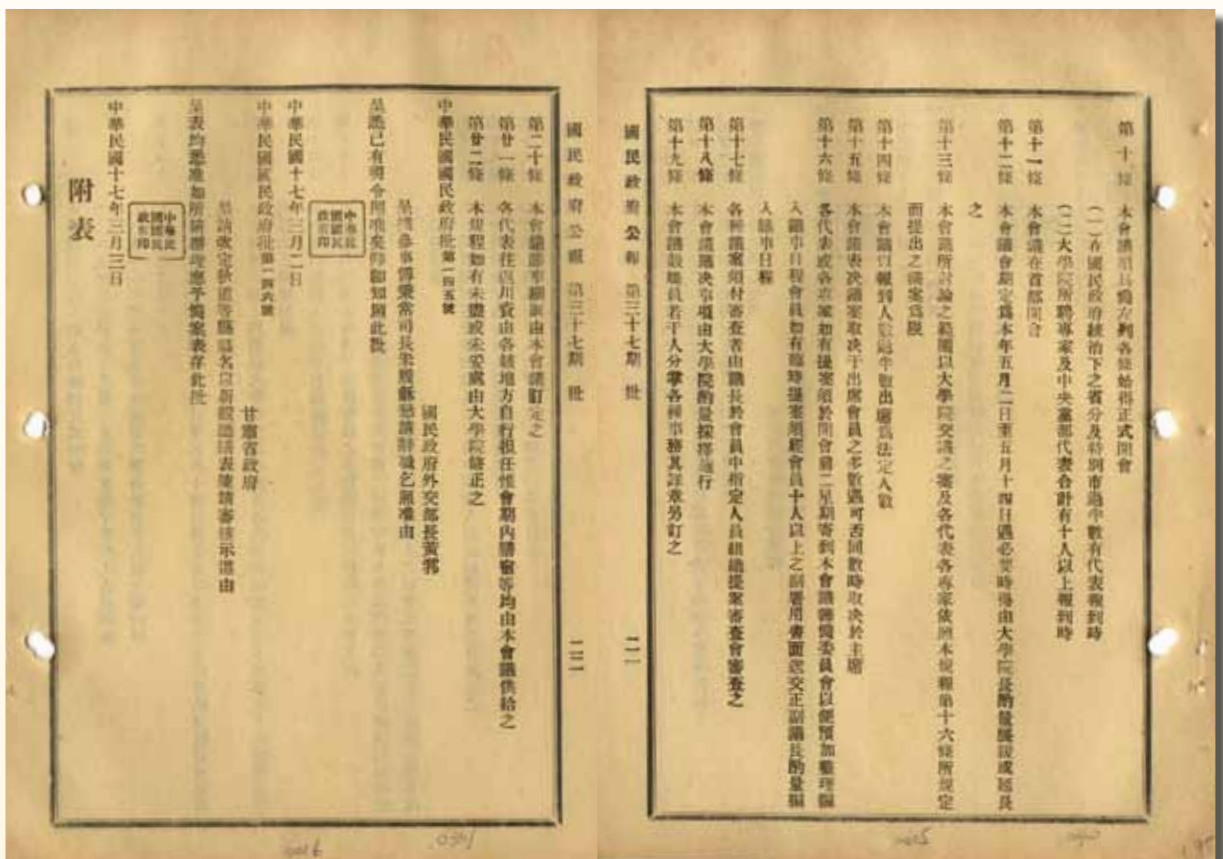 第十條　本會議須具備左列各條始得正式開會
（一）在國民政府統治下之省分及特別市過半數有代表報到時
（二）大學院所聘專家及中央黨部代表合計有十人以上報到時
第十一條　本會議在首都開會
第十二條　本會議會期定爲本年五月二日至五月十四日遇必要時得由大學院長酌量展緩或延長
之
第十三條　本會議所討論之範圍以大學院交議之案及各代表各專家依照本規程第十六條所規定
而提出之議案爲限
第十四條　本會議以報到人數過半數出席爲法定人數
第十五條　本會議表决議案取决于出席會員之多數遇可否同數時取决於主席
第十六條　各代表或各專家如有提案須於開會前二星期寄到本會議籌備委員會以便預加整理編
入議事日程會員如有臨時提案須經會員十人以上之副署用書面送交正副議長酌量編
入議事日程
第十七條　各種議案須付審查者由議長於會員中指定人員組織提案審查會審查之
第十八條　本會議議决事項由大學院酌量採擇施行
第十九條　本會議設職員若干人分掌各種事務其詳章另訂之
國民政府公報　第三十七期　批　二一
國民政府公報　第三十七期　批　二二
第二十條　本會議辦事細則由本會議訂定之
第廿一條　各代表往返川資由各該地方自行担任惟會期內膳宿等均由本會議供給之
第廿二條　本規程如有未盡或未妥處由大學院修正之
中華民國國民政府批第一四五號
國民政府外交部長黃郛
呈悉已有明令照准矣仰卽知照此批
中華民國十七年三月二日
中華民國國民政府印
中華民國國民政府批第一四六號
甘肅省政府
呈表均悉准如所請辦理應予備案表存此批
中華民國國民政府印
中華民國十七年三月三日
附表